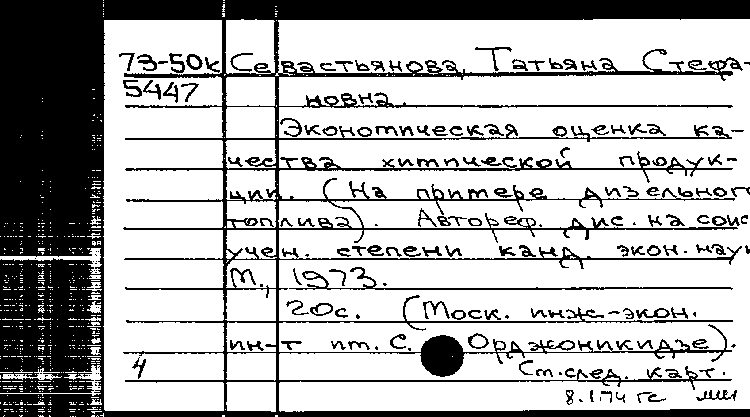 73-50к Севастьянова, Татьяна Стефа-
5447 новна.
Экономическая оценка ка-
чества химической продук-
ции. (На примере дизельного
топлива). Автореф. дис. на соис
учен. степени канд. экон. наук
М., 1973.
20с. (Моск. инж.-экон.
ин-т им. С. Орджоникидзе).
4 См.след. карт.